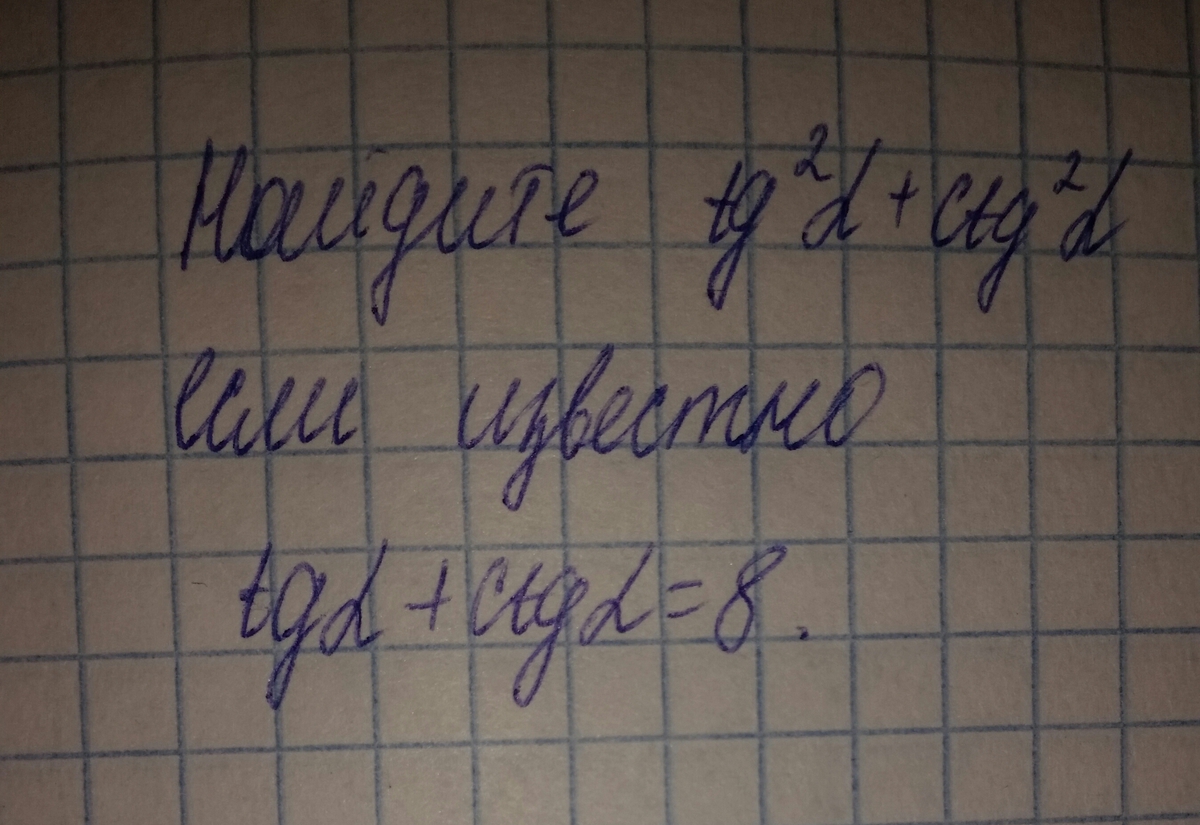 Найдите tg²α + ctg²α
если известно
tgα + ctgα = 8.